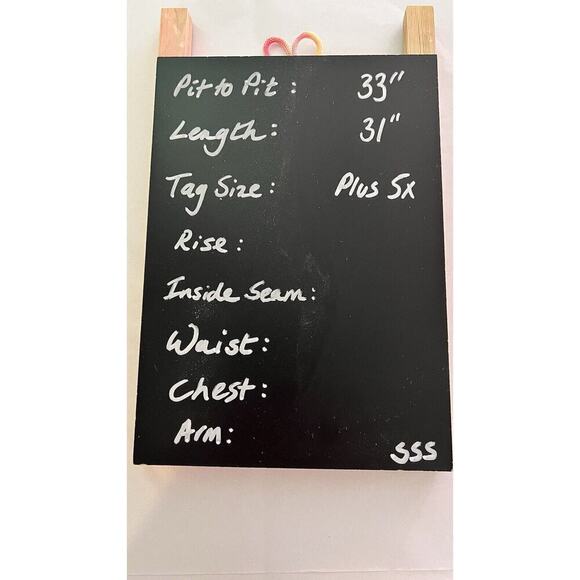 Pit to Pit : 33"
Length : 31"
Tag Size : Plus 5x
Rise :
Inside Seam :
Waist :
Chest :
Arm :
SSS